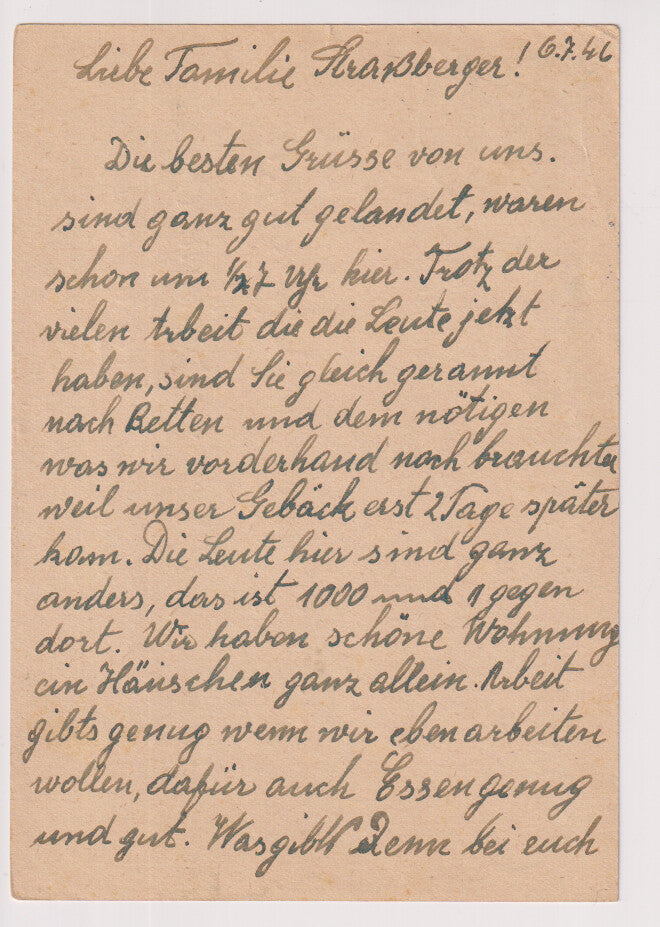 Liebe Familie Straßberger! 6.7.46
Die besten Grüsse von uns.
sind ganz gut gelandet, waren
schon um 1/2 7 Uhr hier. Trotz der
vielen Arbeit die die Leute jetzt
haben, sind Sie gleich gerannt
nach Betten und dem nötigen
was wir vorderhand noch brauchten
weil unser Gebäck erst 2 Tage später
kam. Die Leute hier sind ganz
anders, das ist 1000 und 1 gegen
dort. Wir haben schöne Wohnung
ein Häuschen ganz allein. Arbeit
gibts genug wenn wir eben arbeiten
wollen, dafür auch Essen genug
und gut. Was gibts denn bei euch